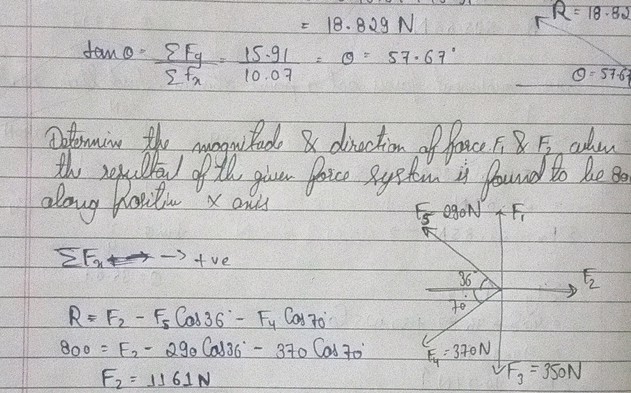 = 18.829 N
R = 18.82
tan θ = ΣFy / Σfx = 15.91 / 10.07 = θ = 57.67°
θ = 57.67
Determine the magnitude & direction of force F1 & F2 when
the resultant of the given force system is found to be 80
along positive x axis
F5 290N F1
ΣFx → +ve
36° F2
70°
R = F2 - F5 Cos36° - F4 Cos70°
800 = F2 - 290 Cos36° - 370 Cos70°
F4 = 370N
F2 = 1161N
F3 = 350N